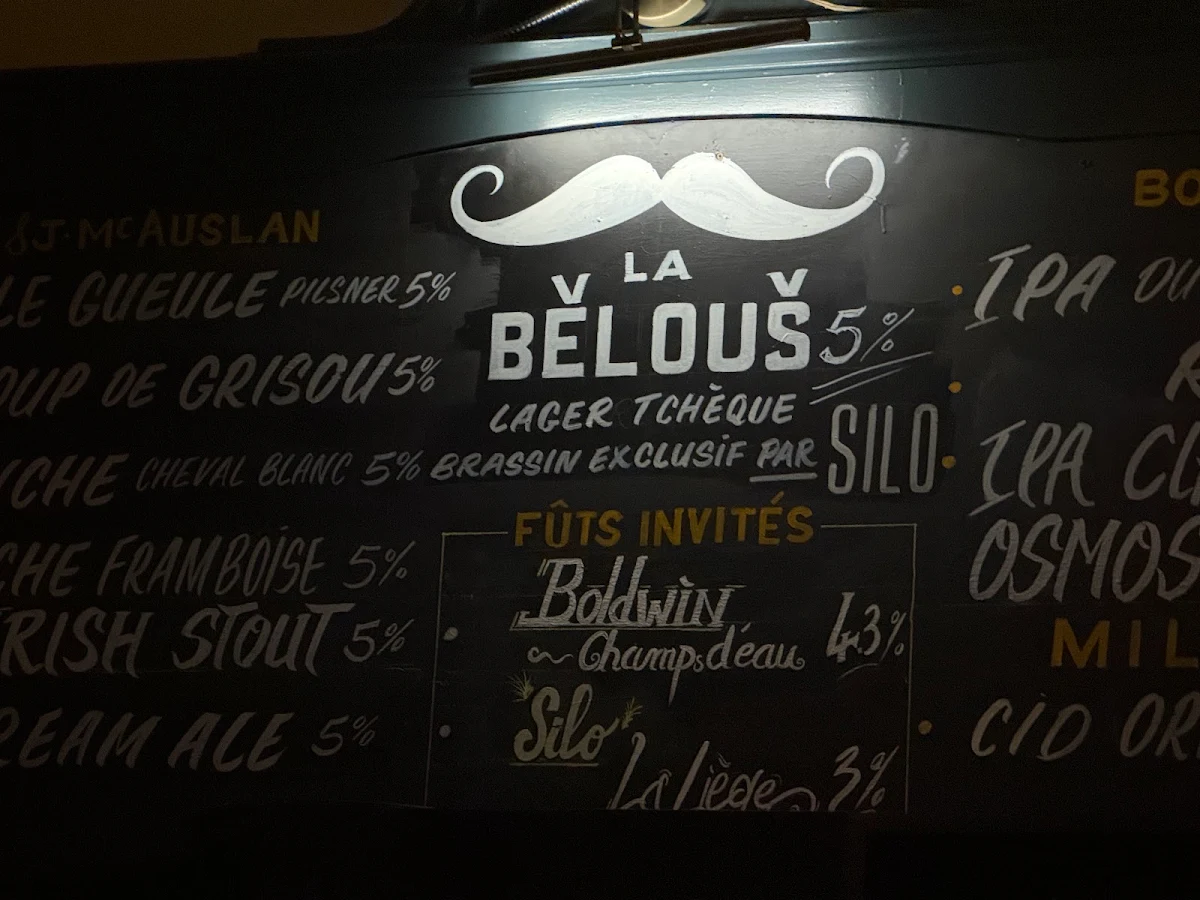 & J. McAUSLAN
LE GUEULE PILSNER 5%
OUP DE GRISOU 5%
CHE CHEVAL BLANC 5%
CHE FRAMBOISE 5%
RISH STOUT 5%
REAM ALE 5%
LA
BĚLOUŠ 5%
LAGER TCHÈQUE
BRASSIN EXCLUSIF PAR SILO
FÛTS INVITÉS
Boldwin
Champs d'eau 4.3%
Silo
La Liège 3%
BO
IPA DU
R
IPA CL
OSMOS
MIL
CID OR